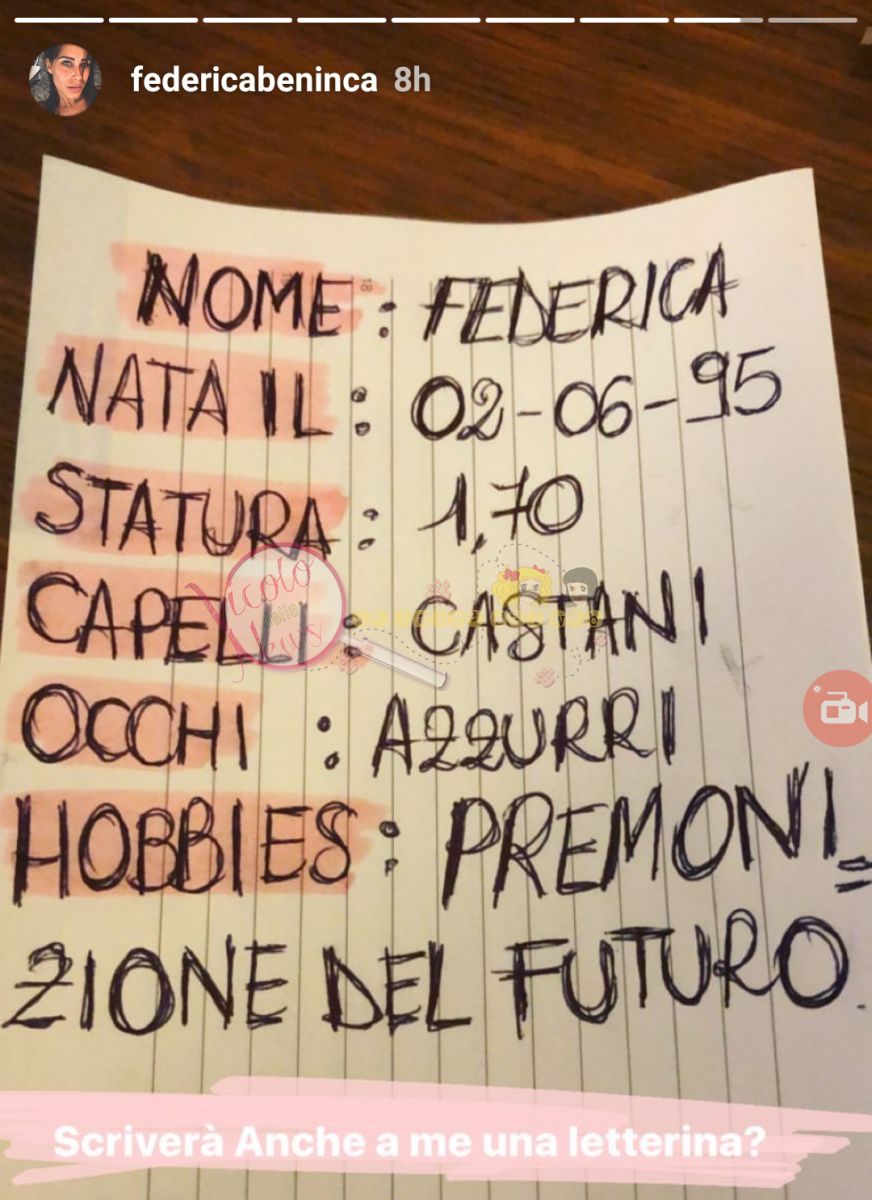 federicabeninca 8h
NOME : FEDERICA
NATA IL : 02-06-95
STATURA : 1,70
CAPELLI : CASTANI
Vicolo
delle
News
OCCHI : AZZURRI
HOBBIES : PREMONI=
ZIONE DEL FUTURO.
Scriverà Anche a me una letterina?